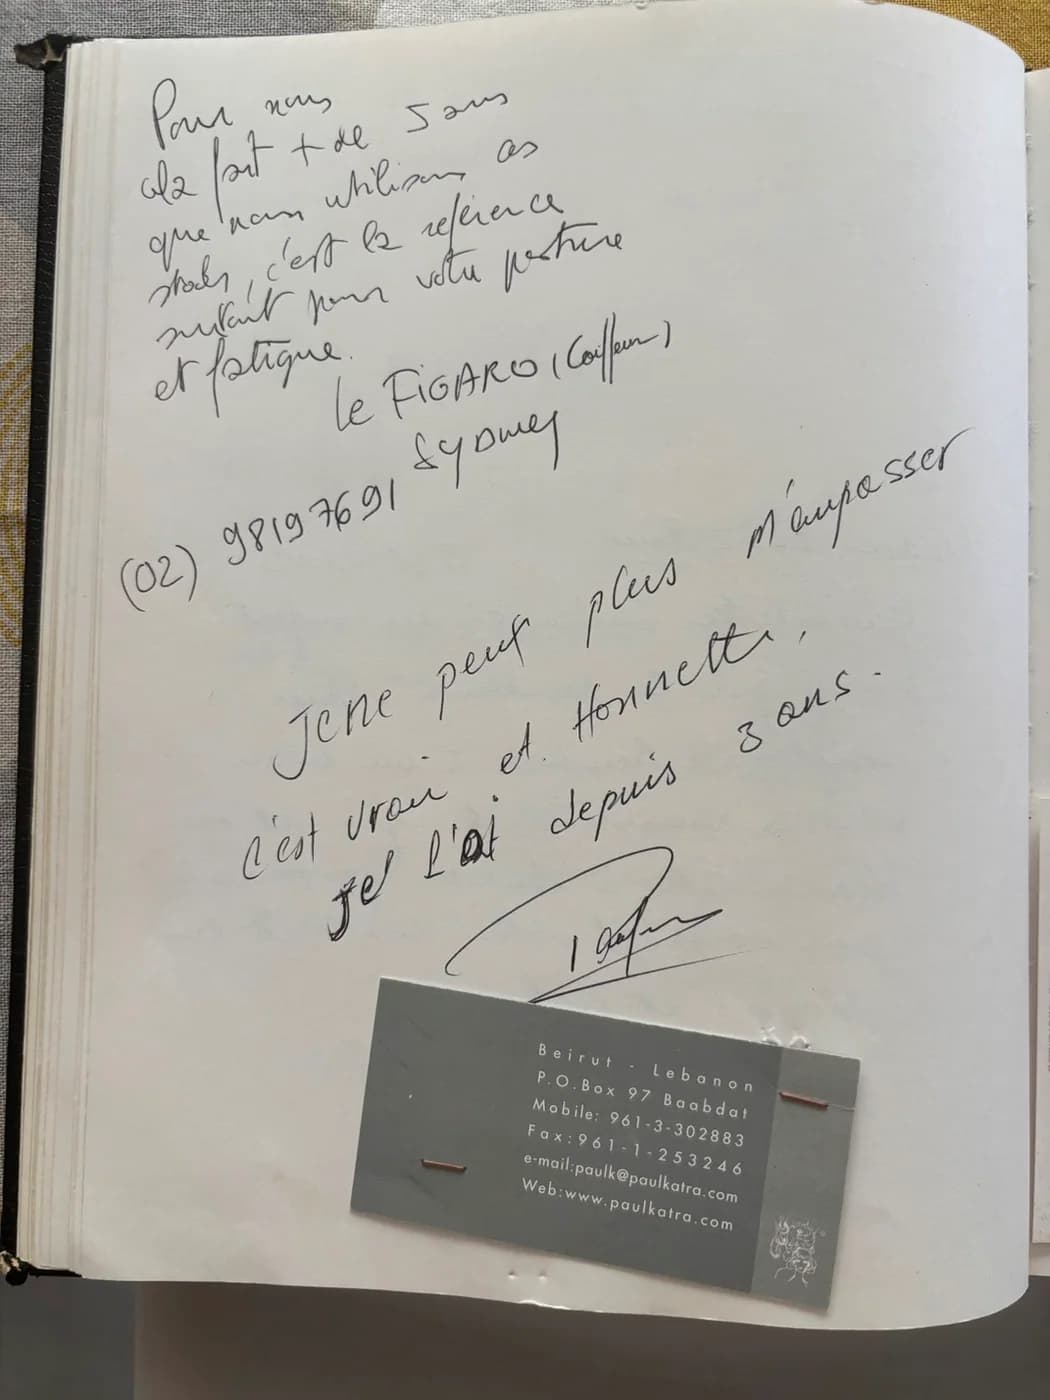 Pour nous
cela fait + de 5 ans
que nous utilisons ces
stools, c'est la reference
surtout pour votre posture
et fatigue.
Le FIGARO (Coiffeur)
Sydney
(02) 98197691
Je ne peux plus m'en passer
c'est vrai et Honnette,
je l'ai depuis 3 ans.
Beirut - Lebanon
P.O.Box 97 Baabdat
Mobile: 961-3-302883
Fax:961-1-253246
e-mail:paulk@paulkatra.com
Web:www.paulkatra.com